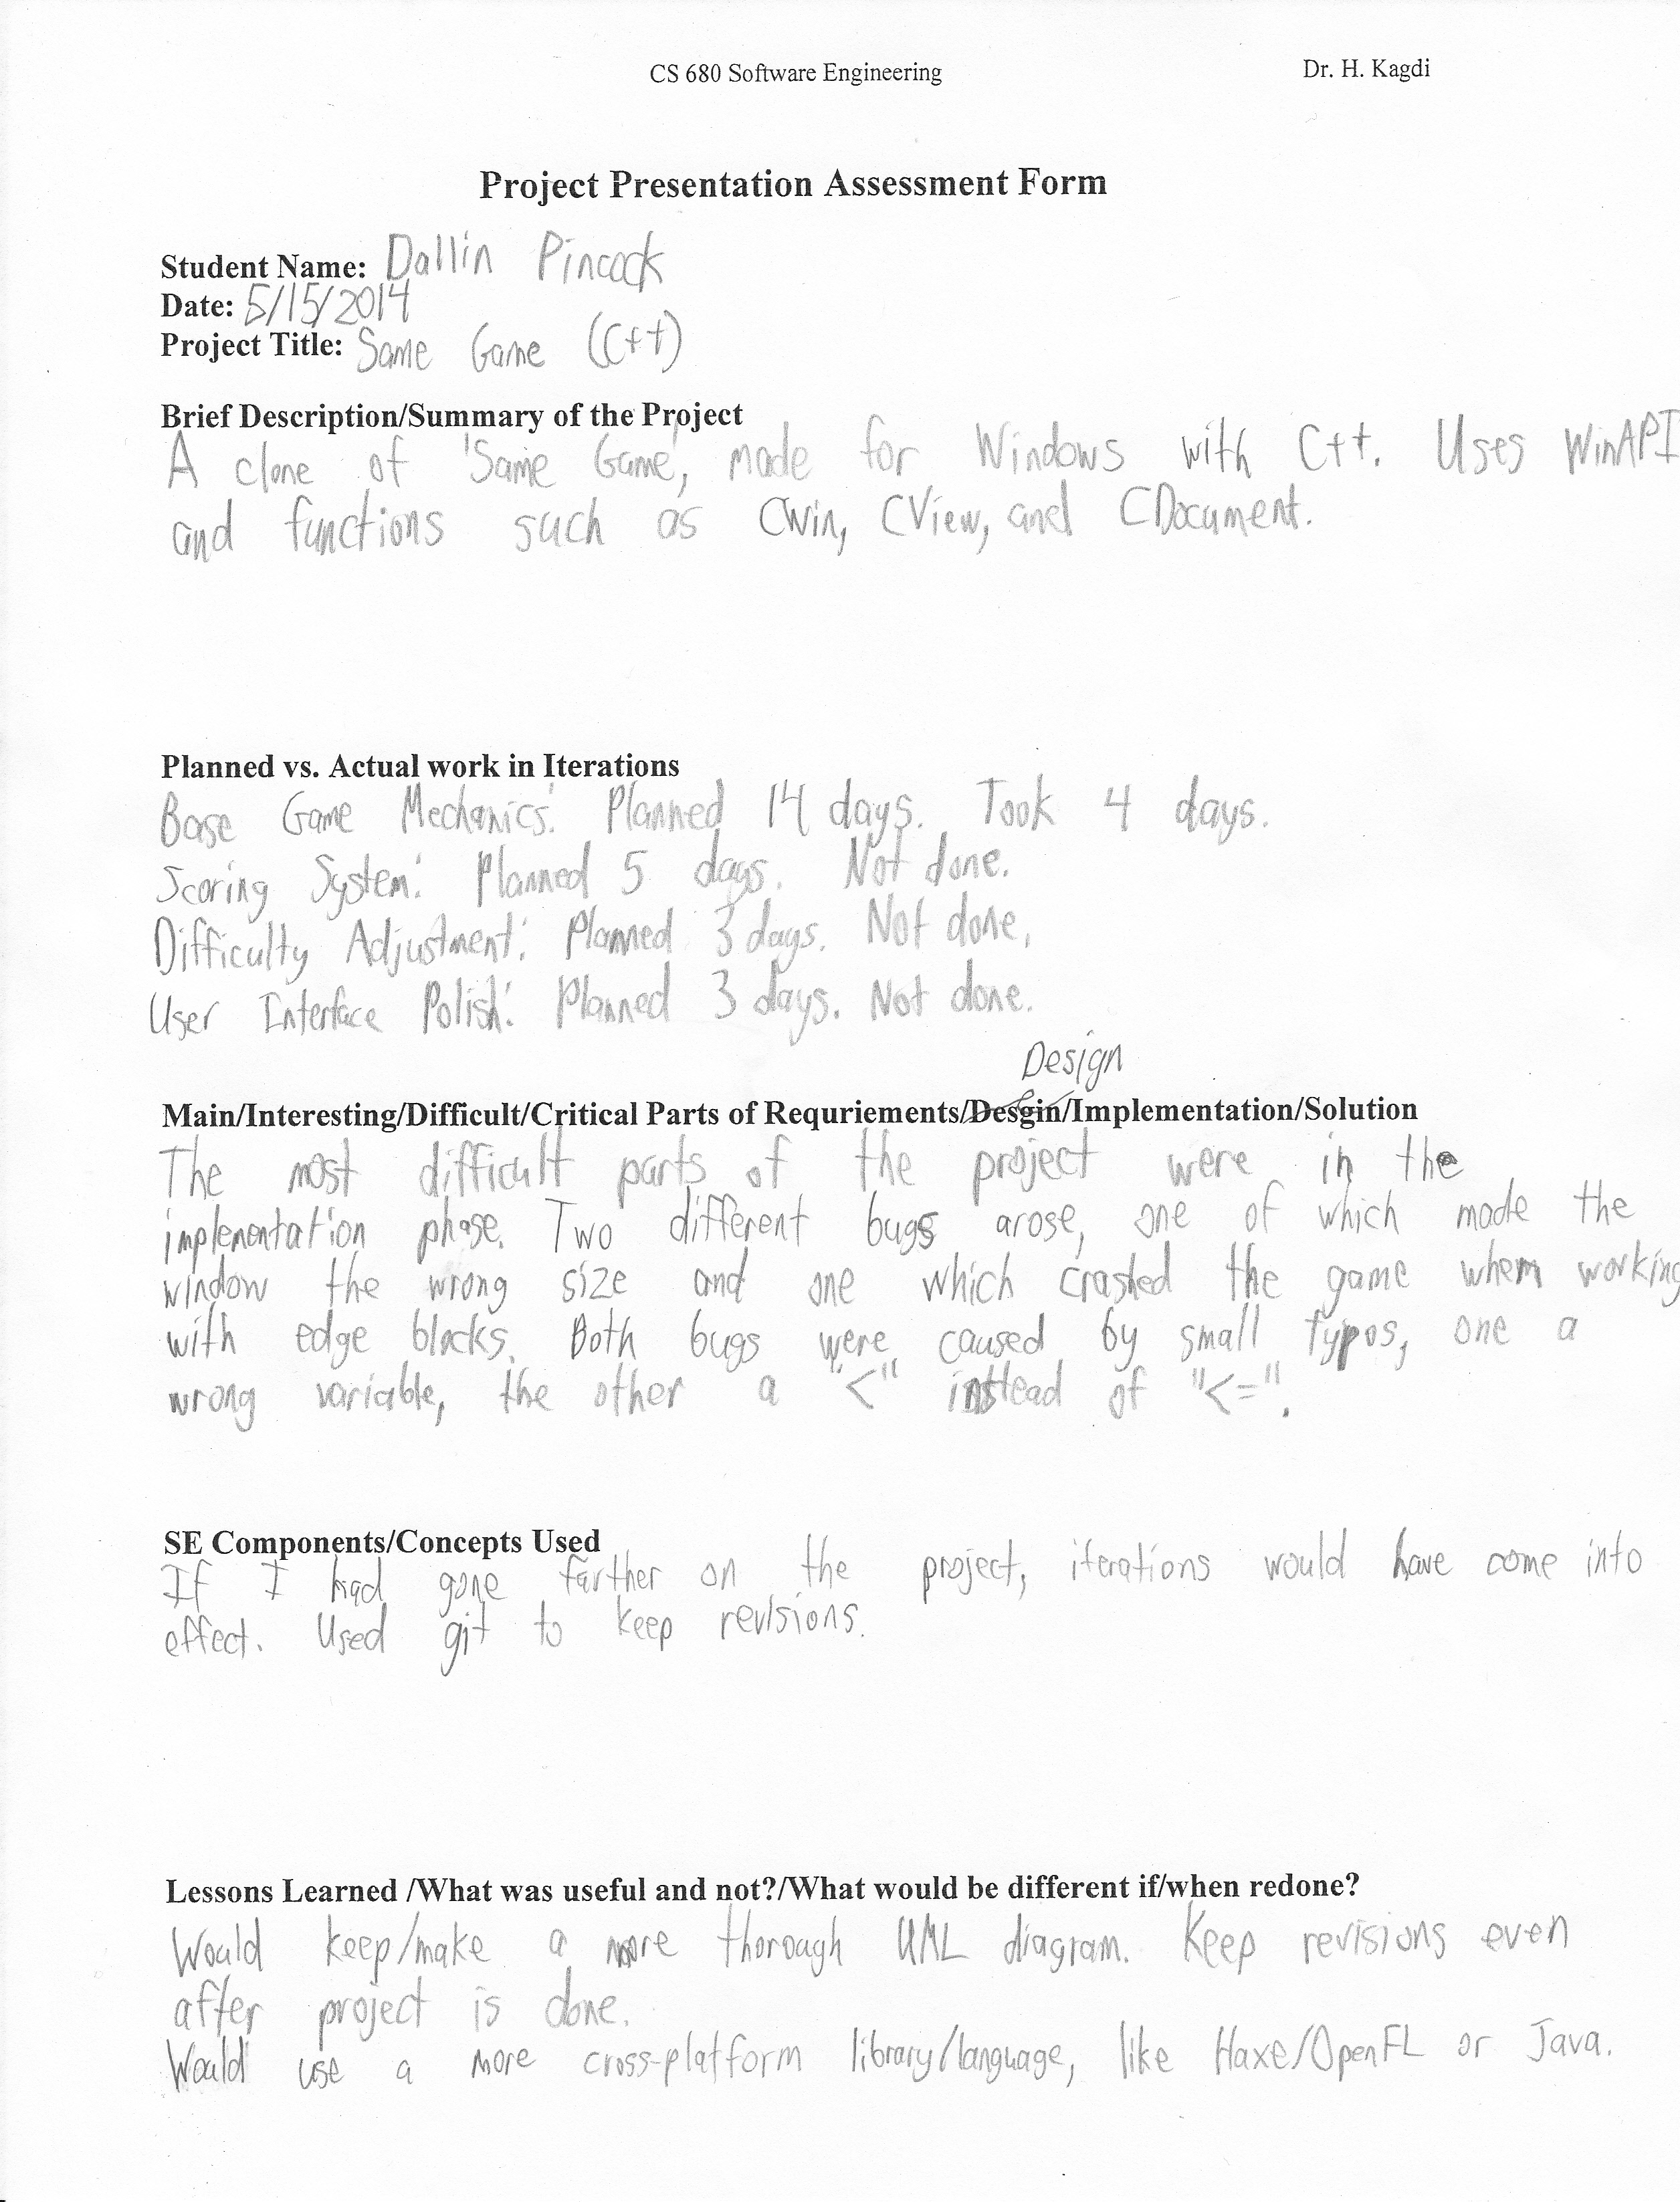 CS 680 Software Engineering Dr. H. Kagdi
Project Presentation Assessment Form
Student Name: Dallin Pincock
Date: 5/15/2014
Project Title: Same Game (C++)
Brief Description/Summary of the Project
A clone of 'Same Game', made for Windows with C++. Uses WinAPI
and functions such as CWin, CView, and CDocument.
Planned vs. Actual work in Iterations
Base Game Mechanics: Planned 14 days. Took 4 days.
Scoring System: Planned 5 days. Not done.
Difficulty Adjustment: Planned 3 days. Not done.
User Interface Polish: Planned 3 days. Not done.
Design
Main/Interesting/Difficult/Critical Parts of Requriements/Desgin/Implementation/Solution
The most difficult parts of the project were in the
implementation phase. Two different bugs arose, one of which made the
window the wrong size and one which crashed the game when working
with edge blocks. Both bugs were caused by small typos, one a
wrong variable, the other a "<" instead of "<=".
SE Components/Concepts Used
If I had gone farther on the project, iterations would have come into
effect. Used git to keep revisions.
Lessons Learned /What was useful and not?/What would be different if/when redone?
Would keep/make a more thorough UML diagram. Keep revisions even
after project is done.
Would use a more cross-platform library/language, like Haxe/OpenFL or Java.